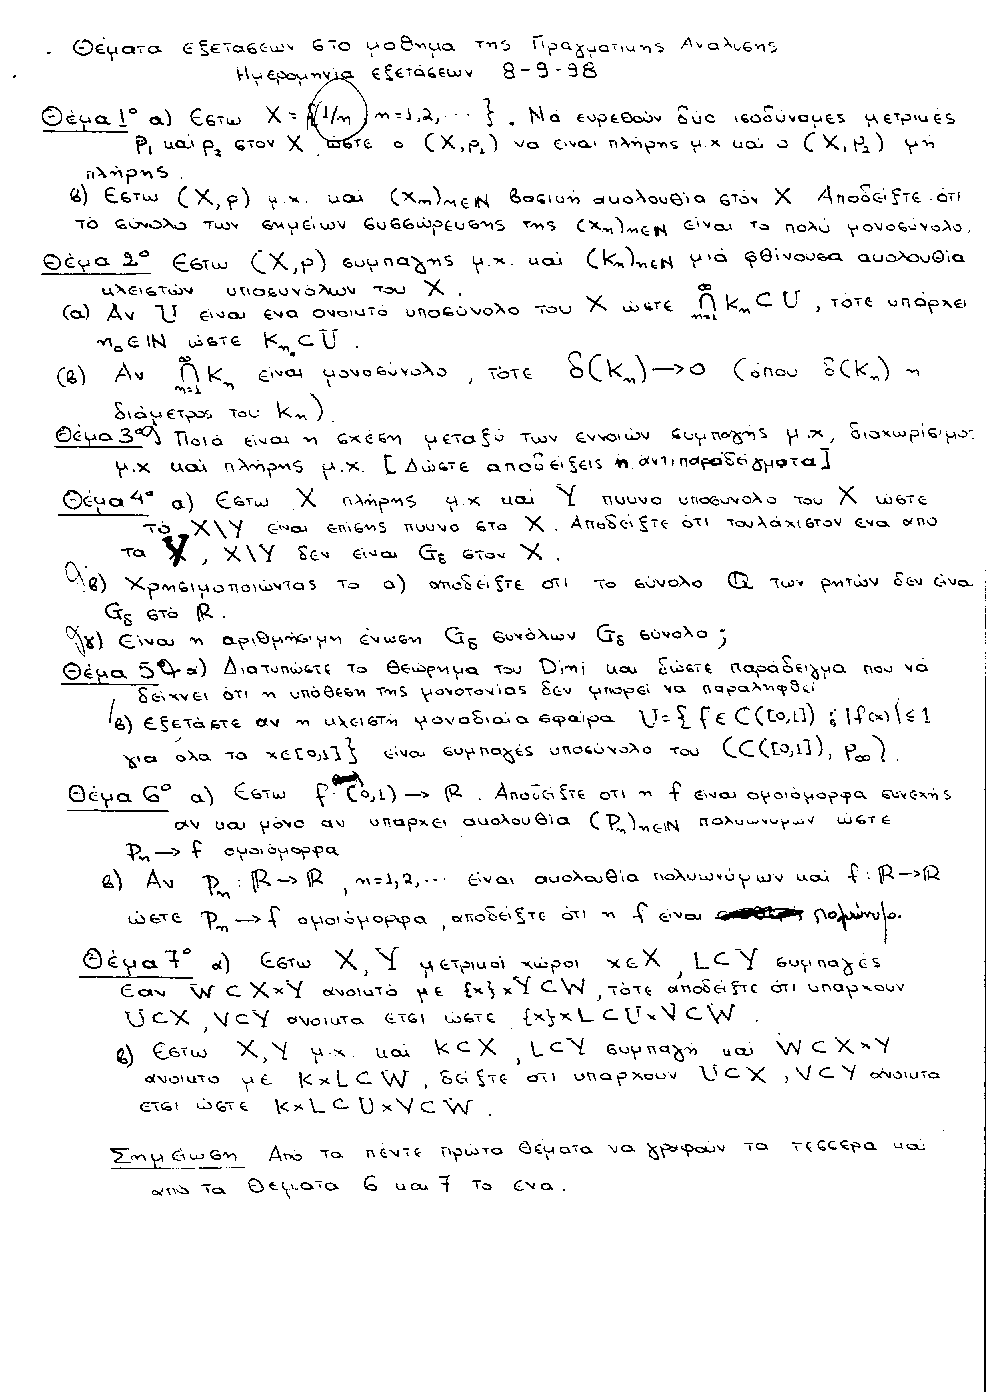 Θέματα εξετάσεων στο μάθημα της Πραγματικής Ανάλυσης
Ημερομηνία εξετάσεων 8-9-98
Θέμα 1° α) Εστω X = {1/n, n=1,2,...}. Νά ευρεθούν δύο ισοδύναμες μετρικές
ρ₁ καί ρ₂ στον X ώστε ο (X,ρ₁) να είναι πλήρης μ.χ καί ο (X,ρ₂) μη
πλήρης.
β) Εστω (X,ρ) μ.χ. καί (xₙ)ₙ∈ℕ βασική ακολουθία στόν X. Αποδείξτε ότι
τό σύνολο των σημείων συσσώρευσης της (xₙ)ₙ∈ℕ είναι το πολύ μονοσύνολο.
Θέμα 2° Εστω (X,ρ) συμπαγής μ.χ. καί (Kₙ)ₙ∈ℕ μιά φθίνουσα ακολουθία
κλειστών υποσυνόλων του X.
(α) Αν U είναι ένα ανοικτό υποσύνολο του X ώστε ⋂ₙ₌₁^∞ Kₙ ⊂ U, τότε υπάρχει
n₀∈ℕ ώστε Kₙ₀ ⊂ U.
(β) Αν ⋂ₙ₌₁^∞ Kₙ είναι μονοσύνολο, τότε δ(Kₙ)→0 (όπου δ(Kₙ) η
διάμετρος του Kₙ)
Θέμα 3° Ποιά είναι η σχέση μεταξύ των εννοιών συμπαγής μ.χ, διαχωρίσιμος
μ.χ καί πλήρης μ.χ. [Δώστε αποδείξεις ή αντιπαραδείγματα]
Θέμα 4° α) Εστω X πλήρης μ.χ καί Y πυκνο υποσυνολο του X ώστε
τό X\Y είναι επίσης πυκνο στο X. Αποδείξτε ότι τουλάχιστον ένα από
τα Y, X\Y δεν είναι Gδ στον X.
β) Χρησιμοποιώντας το α) αποδείξτε οτι το σύνολο ℚ των ρητών δεν είναι
Gδ στό ℝ.
γ) Είναι η αριθμήσιμη ένωση Gδ συνόλων Gδ σύνολο;
Θέμα 5° α) Διατυπώστε το θεώρημα του Dini και δώστε παράδειγμα που νά
δείχνει ότι η υπόθεση της μονοτονίας δεν μπορεί να παραληφθεί
β) Εξετάστε αν η κλειστή μοναδιαία σφαίρα U={f∈C([0,1]) : |f(x)|≤1
για όλα τα x∈[0,1]} είναι συμπαγές υποσύνολο του (C([0,1]), ρ∞).
Θέμα 6° α) Εστω f: (0,1)→ℝ. Αποδείξτε οτι η f είναι ομοιόμορφα συνεχής
αν και μόνο αν υπάρχει ακολουθία (Pₙ)ₙ∈ℕ πολυωνύμων ώστε
Pₙ→f ομοιόμορφα
β) Αν Pₙ: ℝ→ℝ, n=1,2,... είναι ακολουθία πολυωνύμων καί f: ℝ→ℝ
ώστε Pₙ→f ομοιόμορφα, αποδείξτε ότι η f είναι πολυώνυμο.
Θέμα 7° α) Εστω X, Y μετρικοί χώροι x∈X, L⊂Y συμπαγές
Εαν W⊂X×Y ανοικτό με {x}×Y⊂W, τότε αποδείξτε ότι υπάρχουν
U⊂X, V⊂Y ανοικτα έτσι ώστε {x}×L⊂U×V⊂W.
β) Εστω X, Y μ.χ. και K⊂X, L⊂Y συμπαγή και W⊂X×Y
ανοικτο με K×L⊂W, δείξτε οτι υπάρχουν U⊂X, V⊂Y ανοικτα
έτσι ώστε K×L⊂U×V⊂W.
Σημείωση Από τα πέντε πρώτα θέματα να γραφούν τα τέσσερα και
από τα θέματα 6 και 7 το ένα.